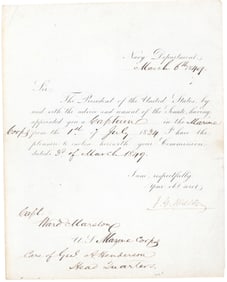 Navy Department,
March 6th 1849.
Sir,
The President of the United States, by
and with the advice and consent of the Senate, having
appointed you a Captain in the Marine
Corps from the 1st of July 1834, I have the
pleasure to enclose herewith your Commission
dated 3d of March 1849.
I am, respectfully,
Your obt servt,
Capt.
Ward Marston
U. S. Marine Corps
Care of Genl A Henderson
Head Quarters